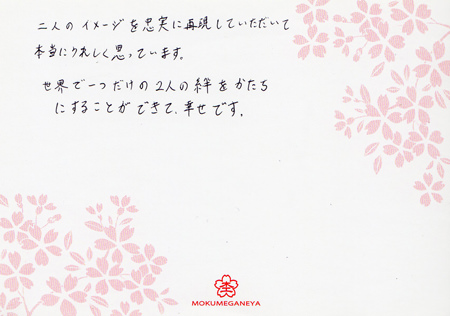 二人のイメージを忠実に再現していただいて
本当にうれしく思っています。
世界で一つだけの2人の絆をかたち
にすることができて、幸せです。
杢
MOKUMEGANEYA